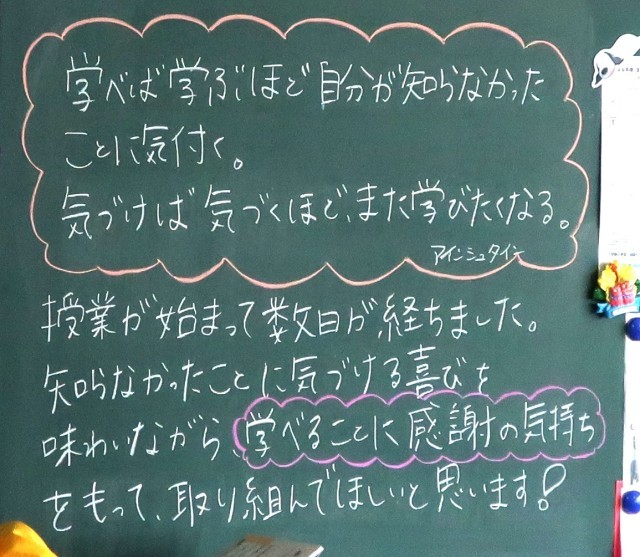 学べば学ぶほど自分が知らなかった
ことに気付く。
気づけば気づくほど、また学びたくなる。
アインシュタイン
授業が始まって数日が経ちました。
知らなかったことに気づける喜びを
味わいながら、学べることに感謝の気持ち
をもって、取り組んでほしいと思います!